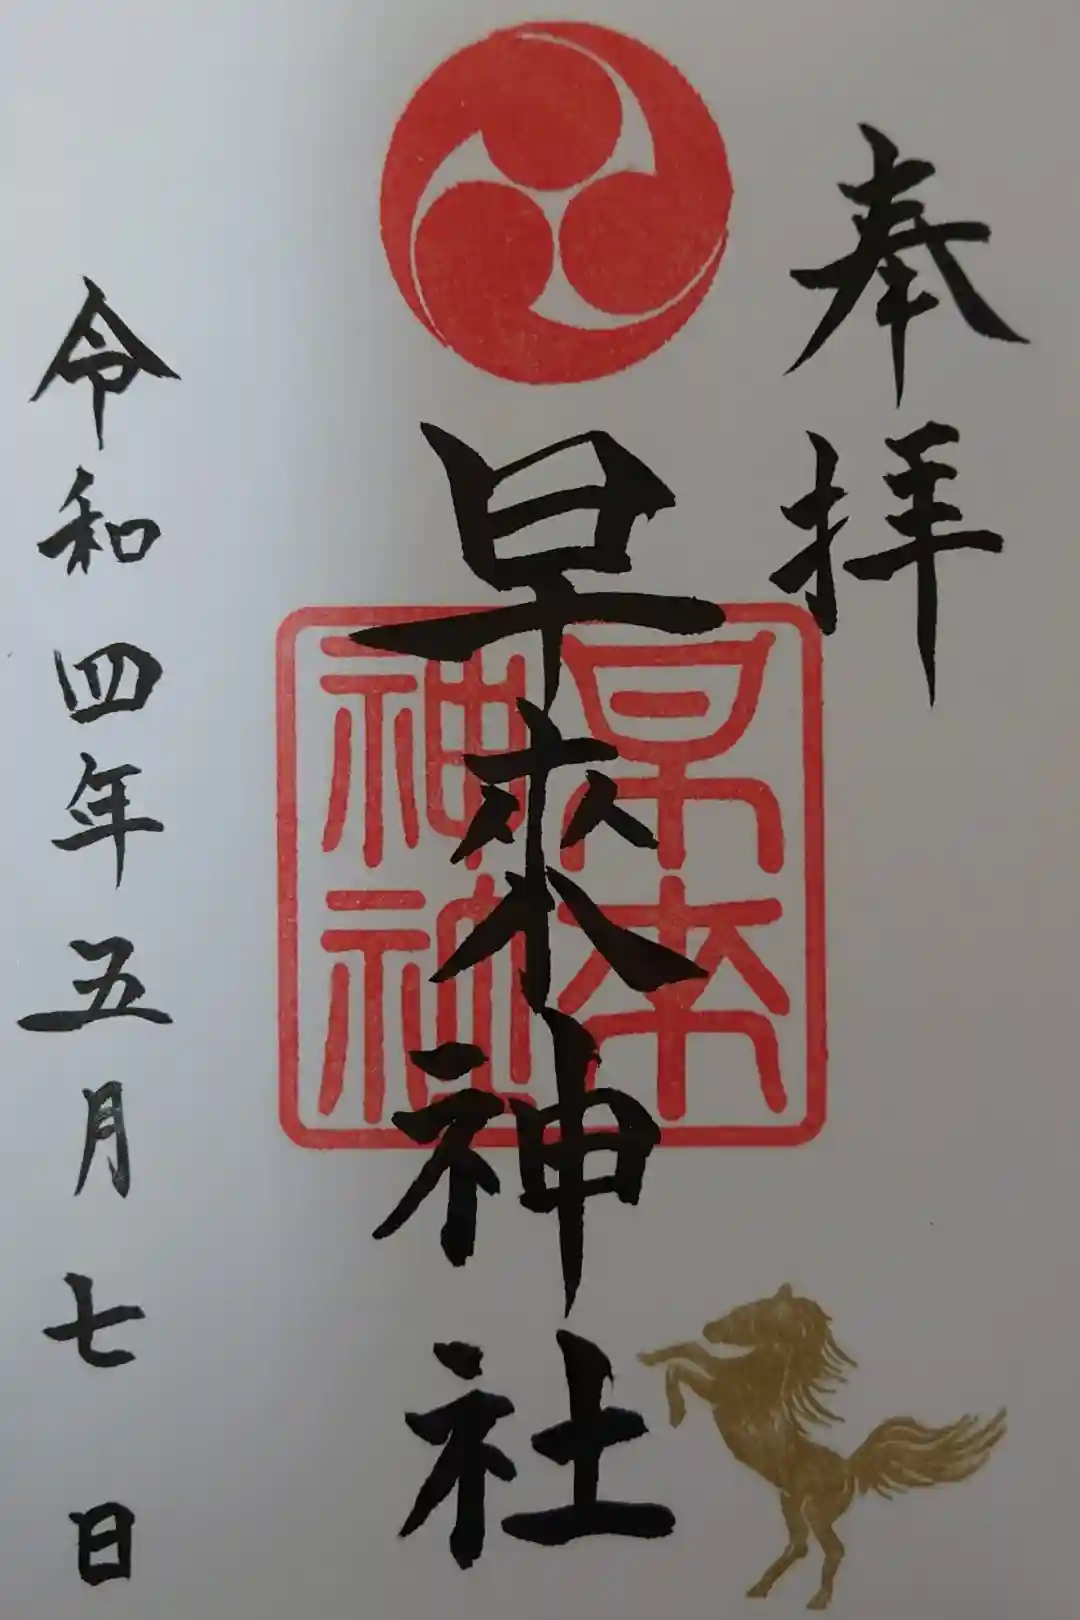 奉拝
早來神社
早来神社
令和四年五月七日